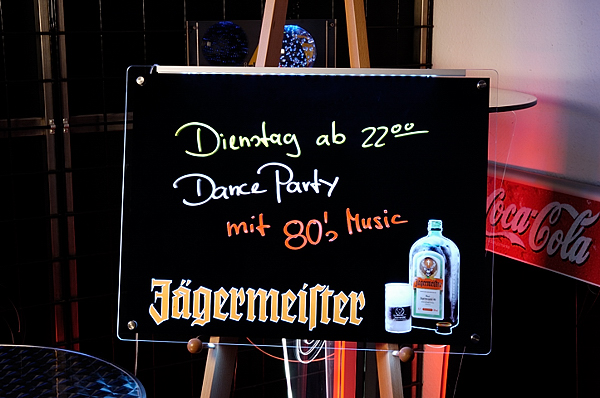 Dienstag ab 22⁰⁰
Dance Party
mit 80's Music
Jägermeiſter
Coca-Cola